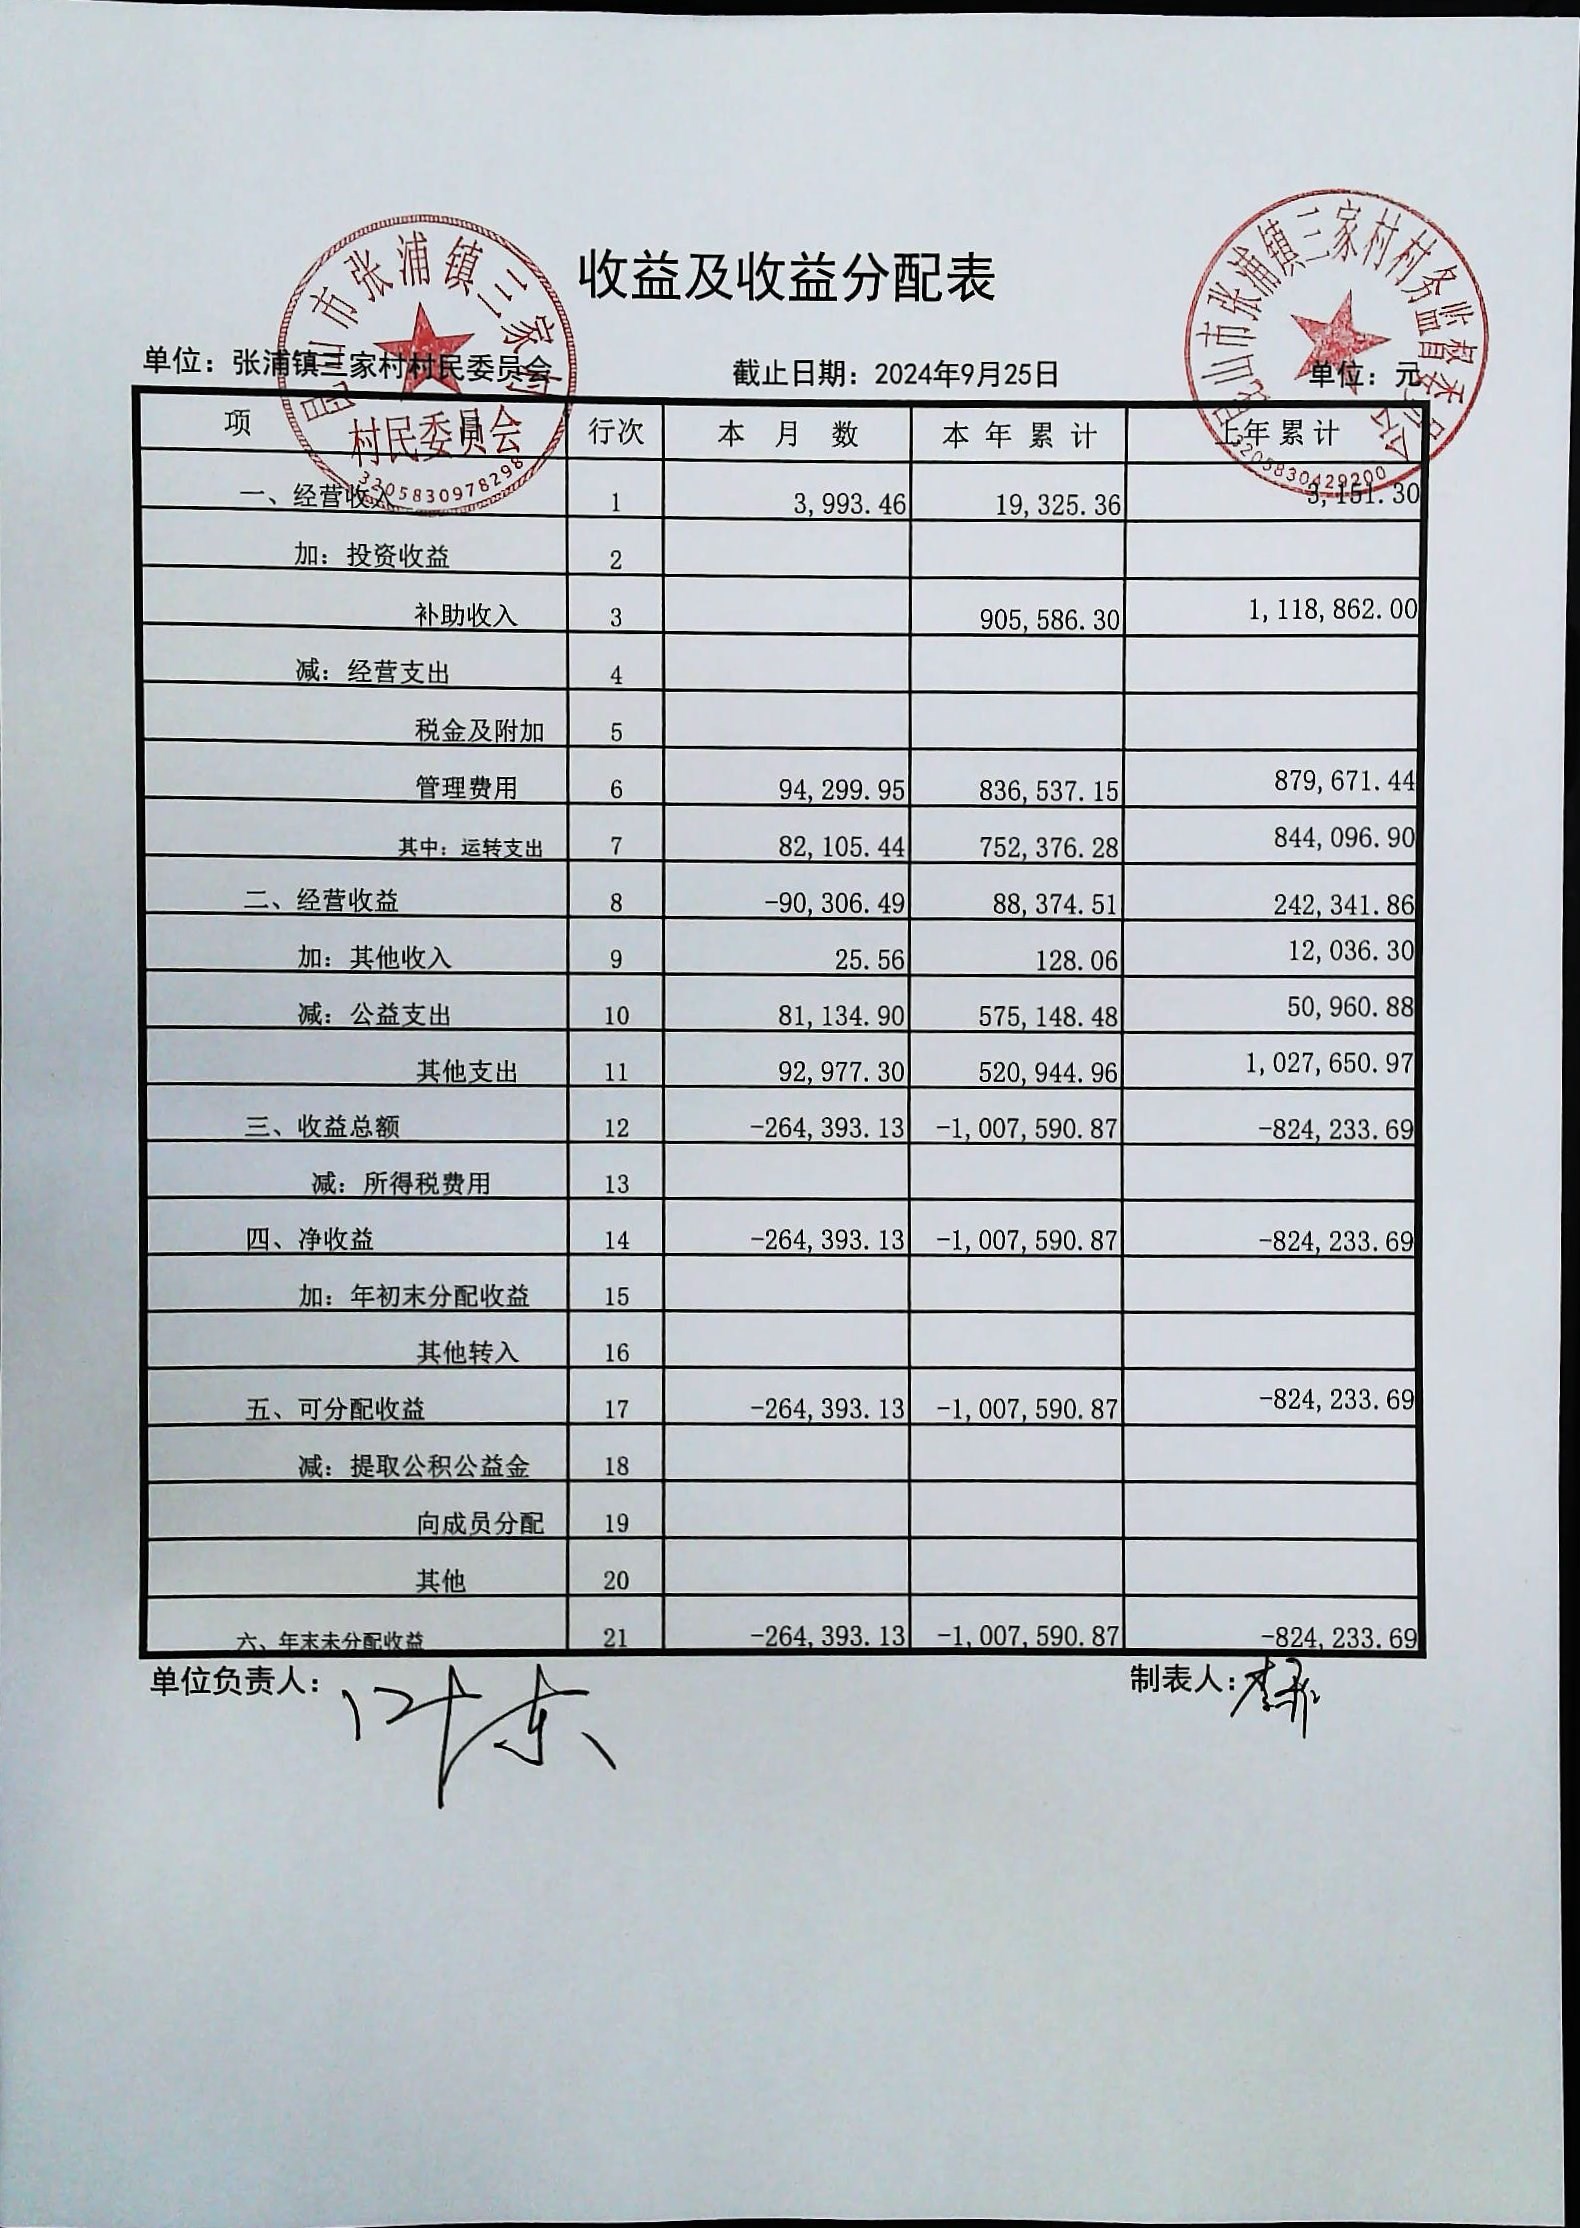 收益及收益分配表
单位：张浦镇三家村村民委员会 截止日期：2024年9月25日 单位：元
昆山市张浦镇三家村
村民委员会
3205830978298
昆山市张浦镇三家村村务监督委员会
3205830429200
项 目 行次 本 月 数 本 年 累 计 上年累计
一、经营收入 1 3,993.46 19,325.36 3,151.30
加：投资收益 2
补助收入 3 905,586.30 1,118,862.00
减：经营支出 4
税金及附加 5
管理费用 6 94,299.95 836,537.15 879,671.44
其中：运转支出 7 82,105.44 752,376.28 844,096.90
二、经营收益 8 -90,306.49 88,374.51 242,341.86
加：其他收入 9 25.56 128.06 12,036.30
减：公益支出 10 81,134.90 575,148.48 50,960.88
其他支出 11 92,977.30 520,944.96 1,027,650.97
三、收益总额 12 -264,393.13 -1,007,590.87 -824,233.69
减：所得税费用 13
四、净收益 14 -264,393.13 -1,007,590.87 -824,233.69
加：年初末分配收益 15
其他转入 16
五、可分配收益 17 -264,393.13 -1,007,590.87 -824,233.69
减：提取公积公益金 18
向成员分配 19
其他 20
六、年末未分配收益 21 -264,393.13 -1,007,590.87 -824,233.69
单位负责人： 叶东 制表人：